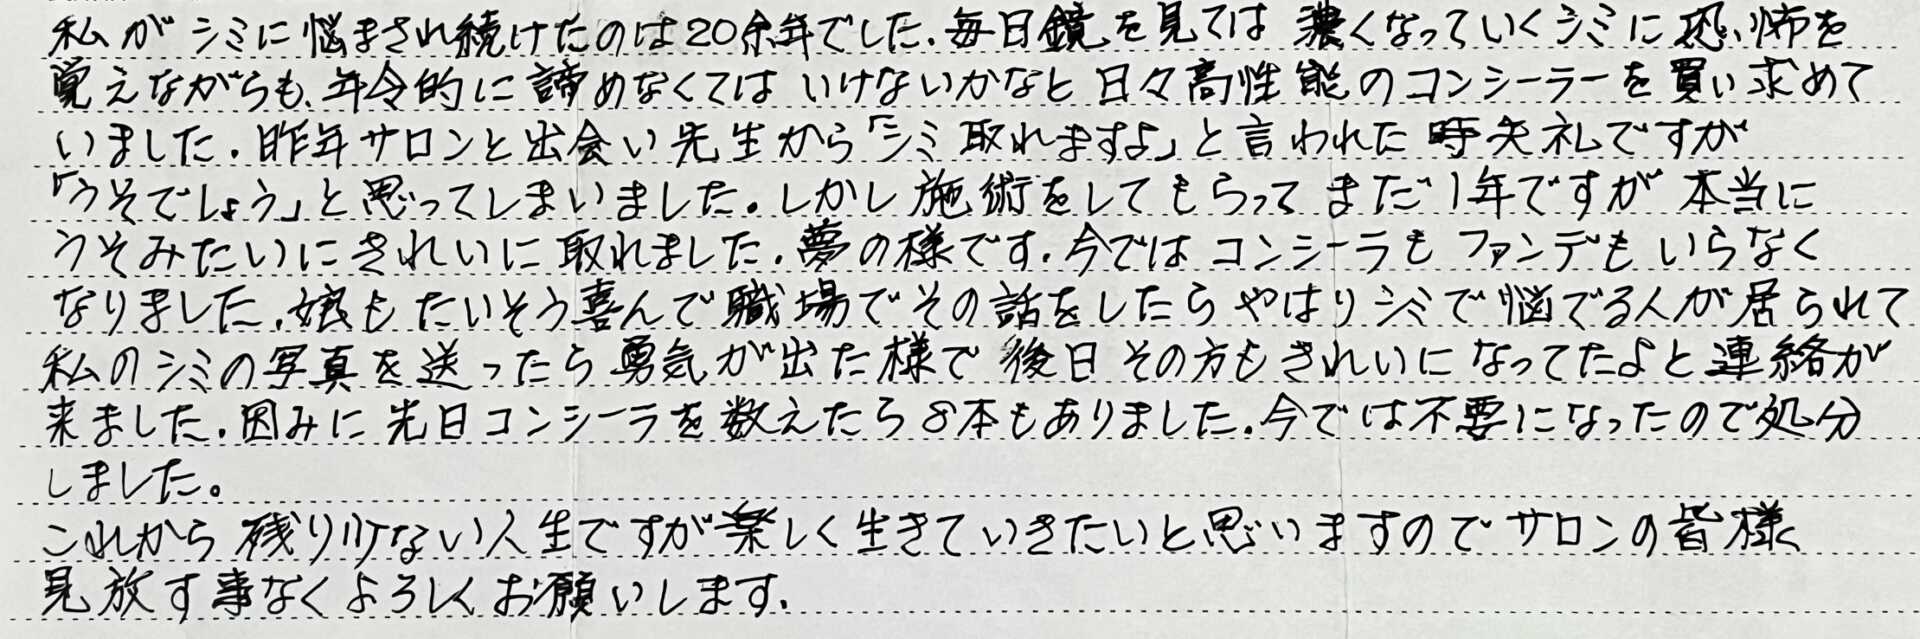 私がシミに悩まされ続けたのは20余年でした.毎日鏡を見ては濃くなっていくシミに恐怖を
覚えながらも、年令的に諦めなくてはいけないかなと日々高性能のコンシーラーを買い求めて
いました.昨年サロンと出会い先生から「シミ取れますよ」と言われた時失礼ですが
「うそでしょう」と思ってしまいました。しかし施術をしてもらってまだ1年ですが本当に
うそみたいにきれいに取れました.夢の様です.今ではコンシーラもファンデもいらなく
なりました.娘もたいそう喜んで職場でその話をしたらやはりシミで悩でる人が居られて
私のシミの写真を送ったら勇気が出た様で後日その方もきれいになってたよと連絡が
来ました.因みに先日コンシーラを数えたら8本もありました.今では不要になったので処分
しました。
これから残り少ない人生ですが楽しく生きていきたいと思いますのでサロンの皆様
見放す事なくよろしくお願いします.